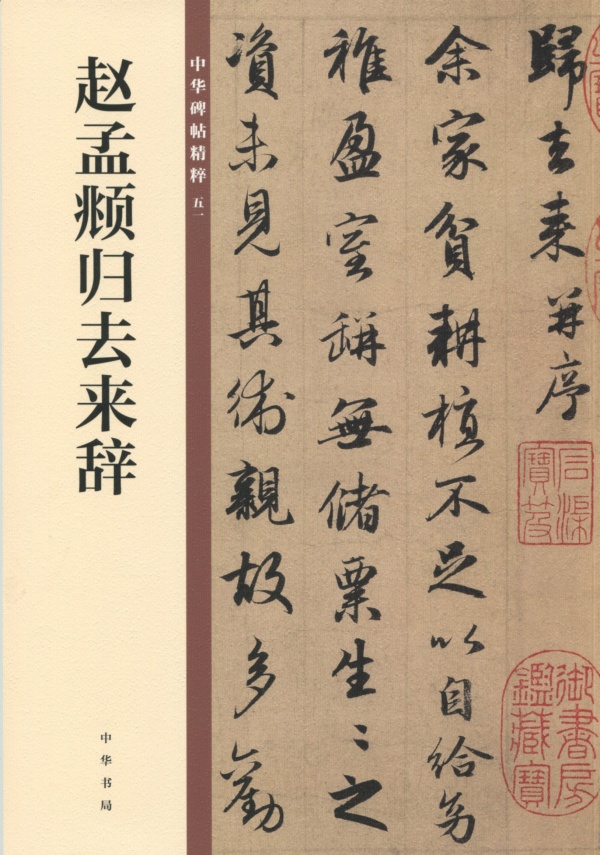 赵孟𫖯归去来辞
中华书局
中华碑帖精粹 五一
歸去来并序
余家貧耕植不足以自給幼
稚盈室缾無儲粟生〻之
資未見其術親故多勸
石渠
寶笈
御書房
鑑藏寶